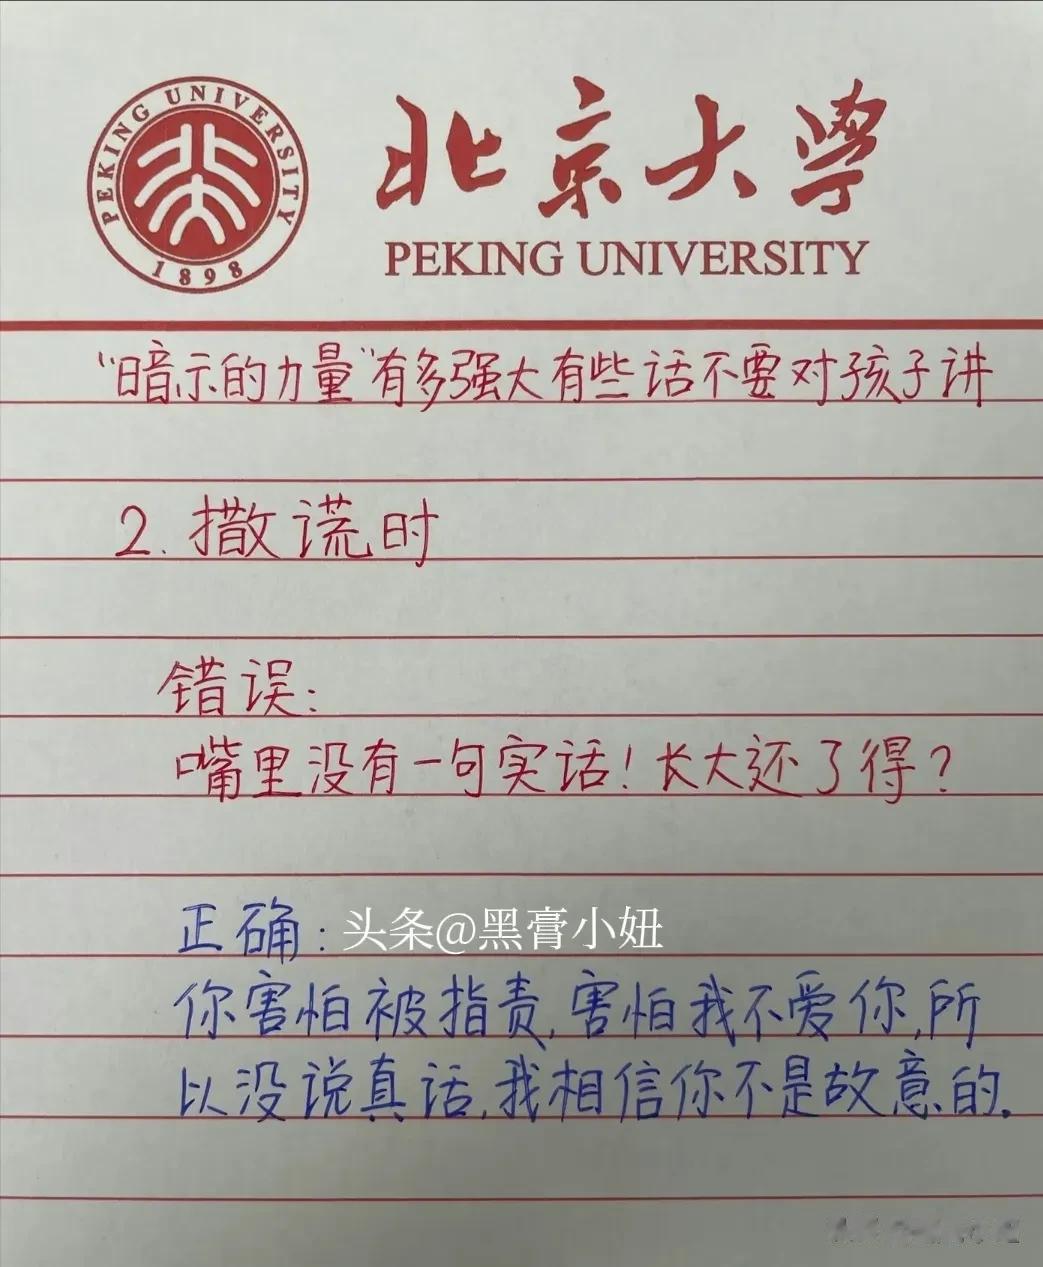 PEKING UNIVERSITY
1898
北京大學
PEKING UNIVERSITY
“暗示的力量”有多强大有些话不要对孩子讲
2. 撒谎时
错误:
嘴里没有一句实话！长大还了得？
正确:
头条@黑膏小妞
你害怕被指责,害怕我不爱你,所
以没说真话,我相信你不是故意的.